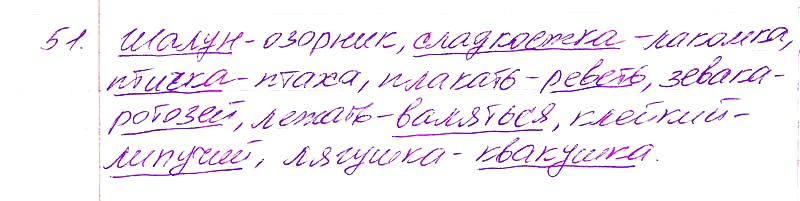 51. Шалун - озорник, сладкоежка - лакомка,
птичка - птаха, плакать - реветь, зевака -
ротозей, лежать - валяться, клейкий -
липучий, лягушка - квакушка.